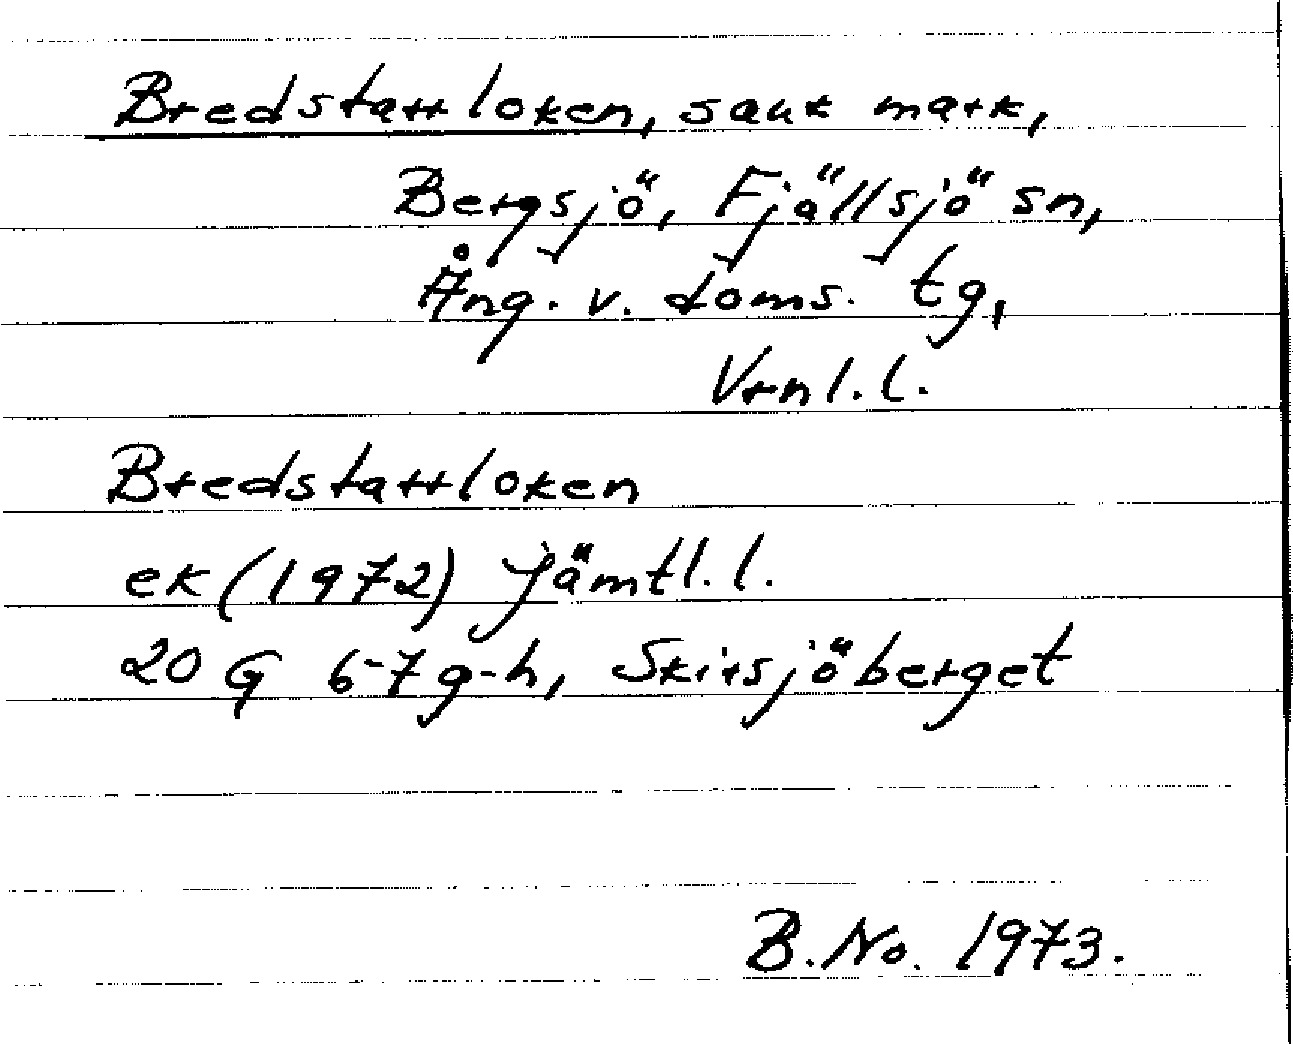 Bredstarrloken, sank mark,
Bergsjö, Fjällsjö sn,
Ång. v. doms. tg,
Vrnl.l.
Bredstarrloken
ek(1972) Jämtl.l.
20 G 6-7g-h, Skirsjöberget
B.No. 1973.